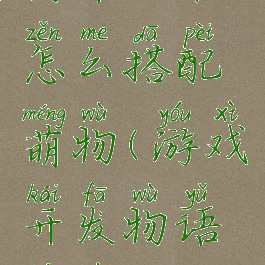 zěn me dā pèi
怎么搭配
méng wù yóu xì
萌物(游戏
kāi fā wù yǔ
开发物语